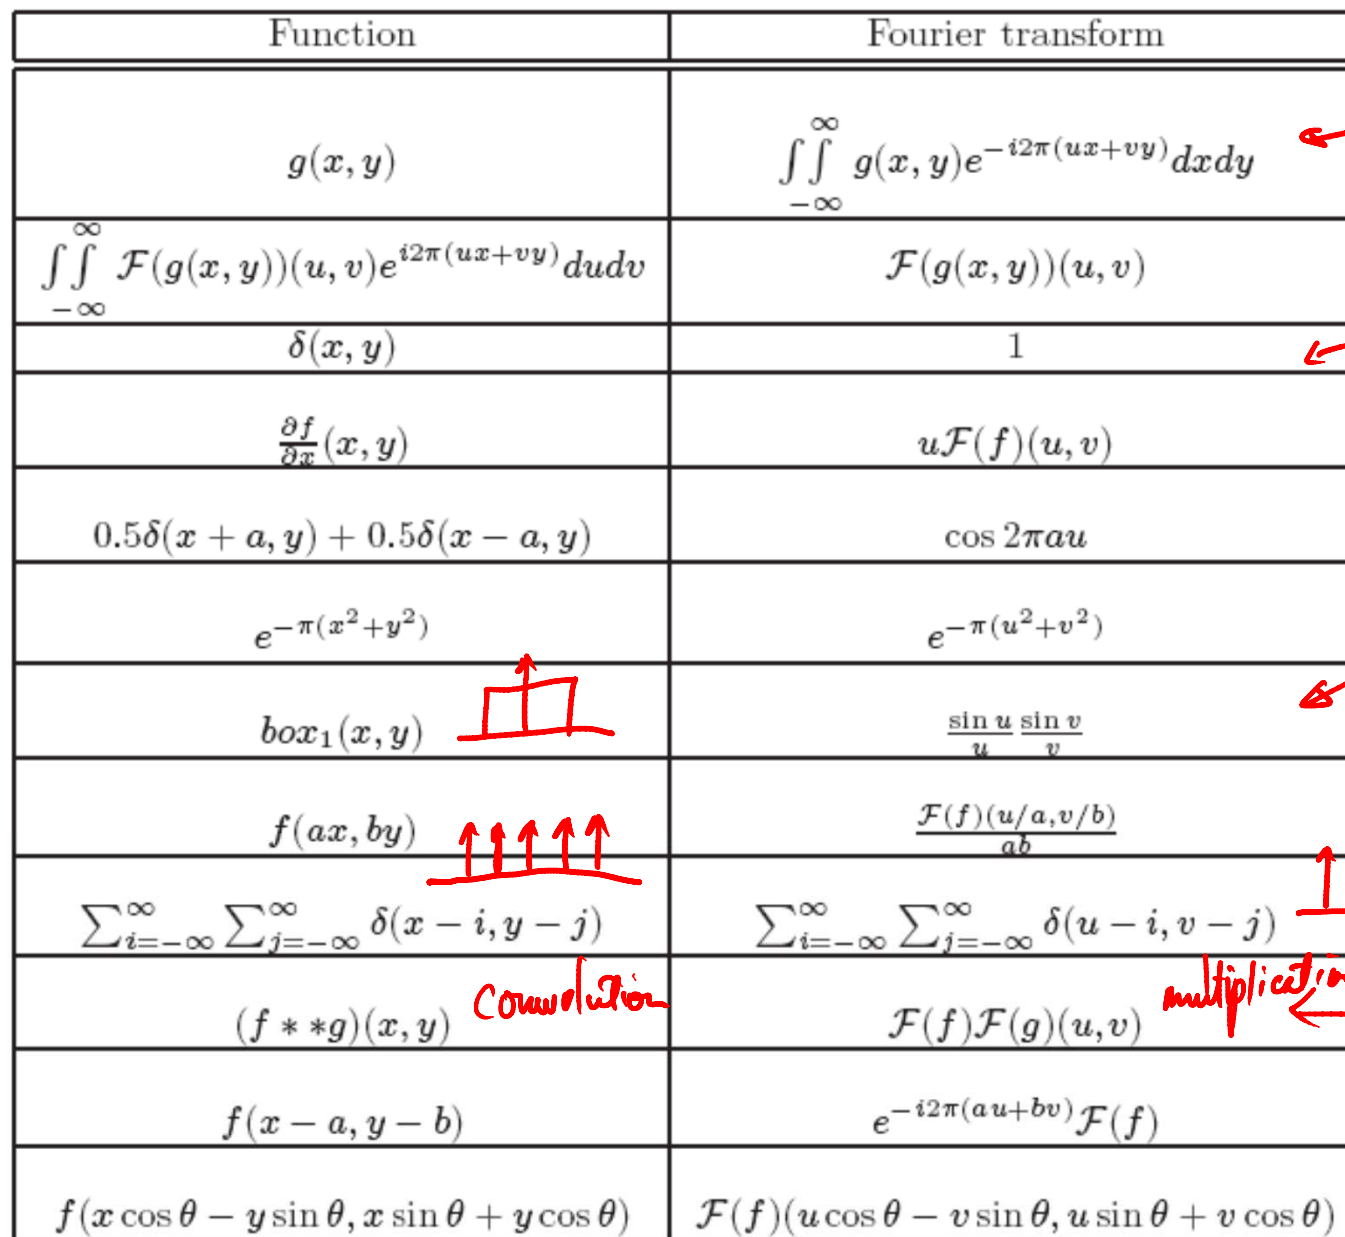 Function Fourier transform
g(x, y) ∫∫_{-∞}^{∞} g(x, y)e^{-i2π(ux+vy)}dxdy
∫∫_{-∞}^{∞} ℱ(g(x, y))(u, v)e^{i2π(ux+vy)}dudv ℱ(g(x, y))(u, v)
δ(x, y) 1
∂f/∂x (x, y) uℱ(f)(u, v)
0.5δ(x + a, y) + 0.5δ(x − a, y) cos 2πau
e^{-π(x²+y²)} e^{-π(u²+v²)}
box₁(x, y) sin u/u sin v/v
f(ax, by) ℱ(f)(u/a,v/b)/ab
∑_{i=-∞}^{∞} ∑_{j=-∞}^{∞} δ(x − i, y − j) ∑_{i=-∞}^{∞} ∑_{j=-∞}^{∞} δ(u − i, v − j)
(f ∗ ∗g)(x, y) Convolution ℱ(f)ℱ(g)(u, v) multiplication
f(x − a, y − b) e^{-i2π(au+bv)}ℱ(f)
f(x cos θ − y sin θ, x sin θ + y cos θ) ℱ(f)(u cos θ − v sin θ, u sin θ + v cos θ)